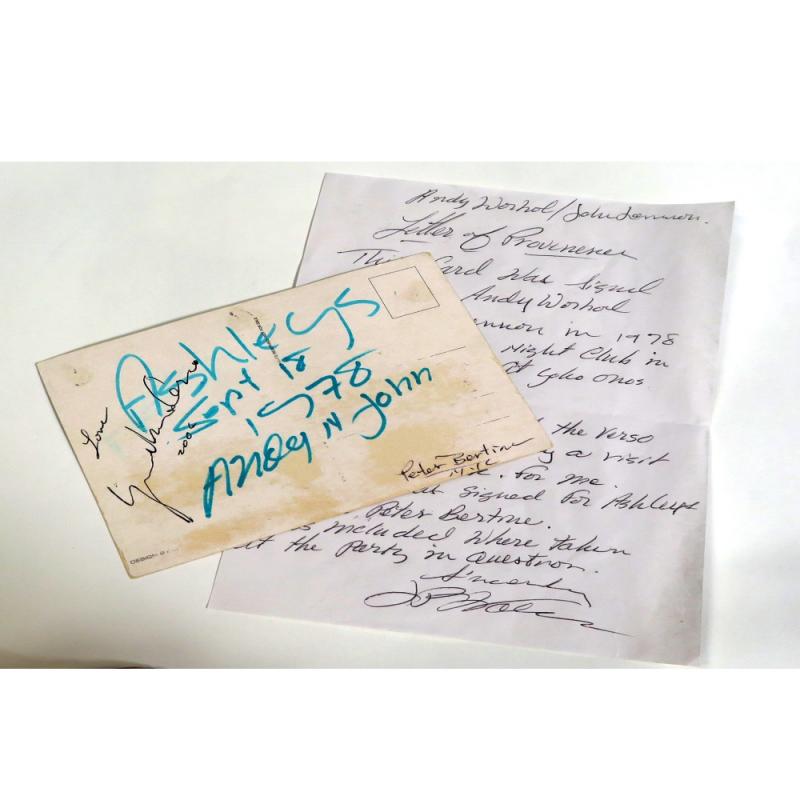 Ashleys
Sept 18
1978
Andy N John
Love
2005
Peter Bertine
NYC
DESIGN BY
Andy Worhol/John Lennon.
Letter of Provenence
This Card was signed
Andy Worhol
ennon in 1978
Night Club in
At Yoko Onos
the verso
a visit
for me.
signed for Ashleys
Peter Bertine.
included where taken
at the party in question.
Sincerely